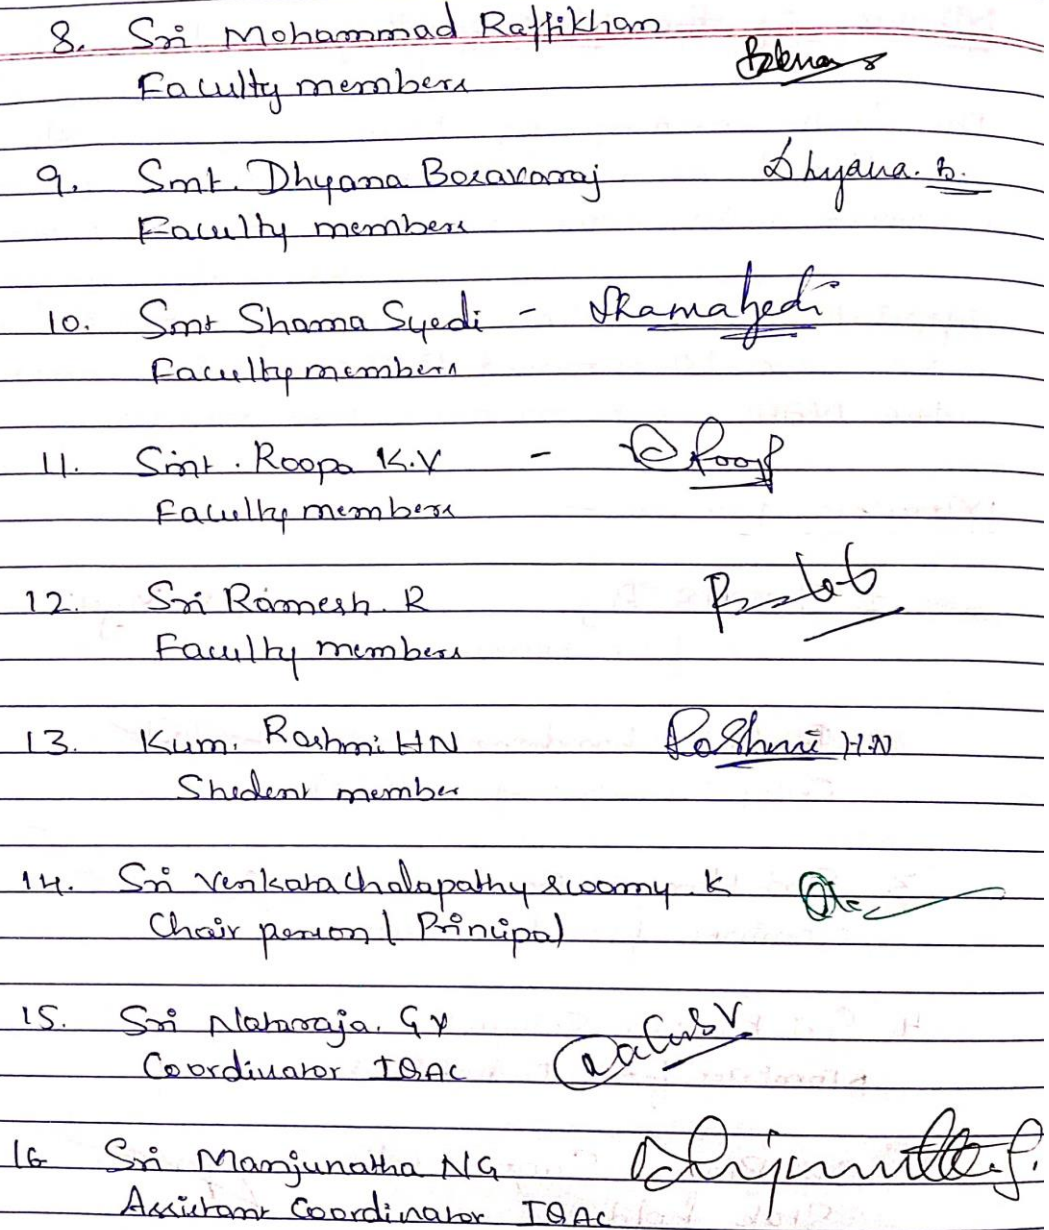 8. Sri Mohammad Raffikhan
Faculty members
9. Smt. Dhyana Basavaraj Dhyana. B.
Faculty members
10. Smt Shama Syedi - Shamahedi
Faculty members
11. Smt. Roopa K.V - Roopa
Faculty members
12. Sri Ramesh. R
Faculty members
13. Kum. Rashmi HN Rashmi H.N
Student member
14. Sri Venkatachalapathy swamy. K
Chair person / Principal
15. Sri Nataraja. G V
Coordinator IQAC
16 Sri Manjunatha NG
Assistant Coordinator IQAC